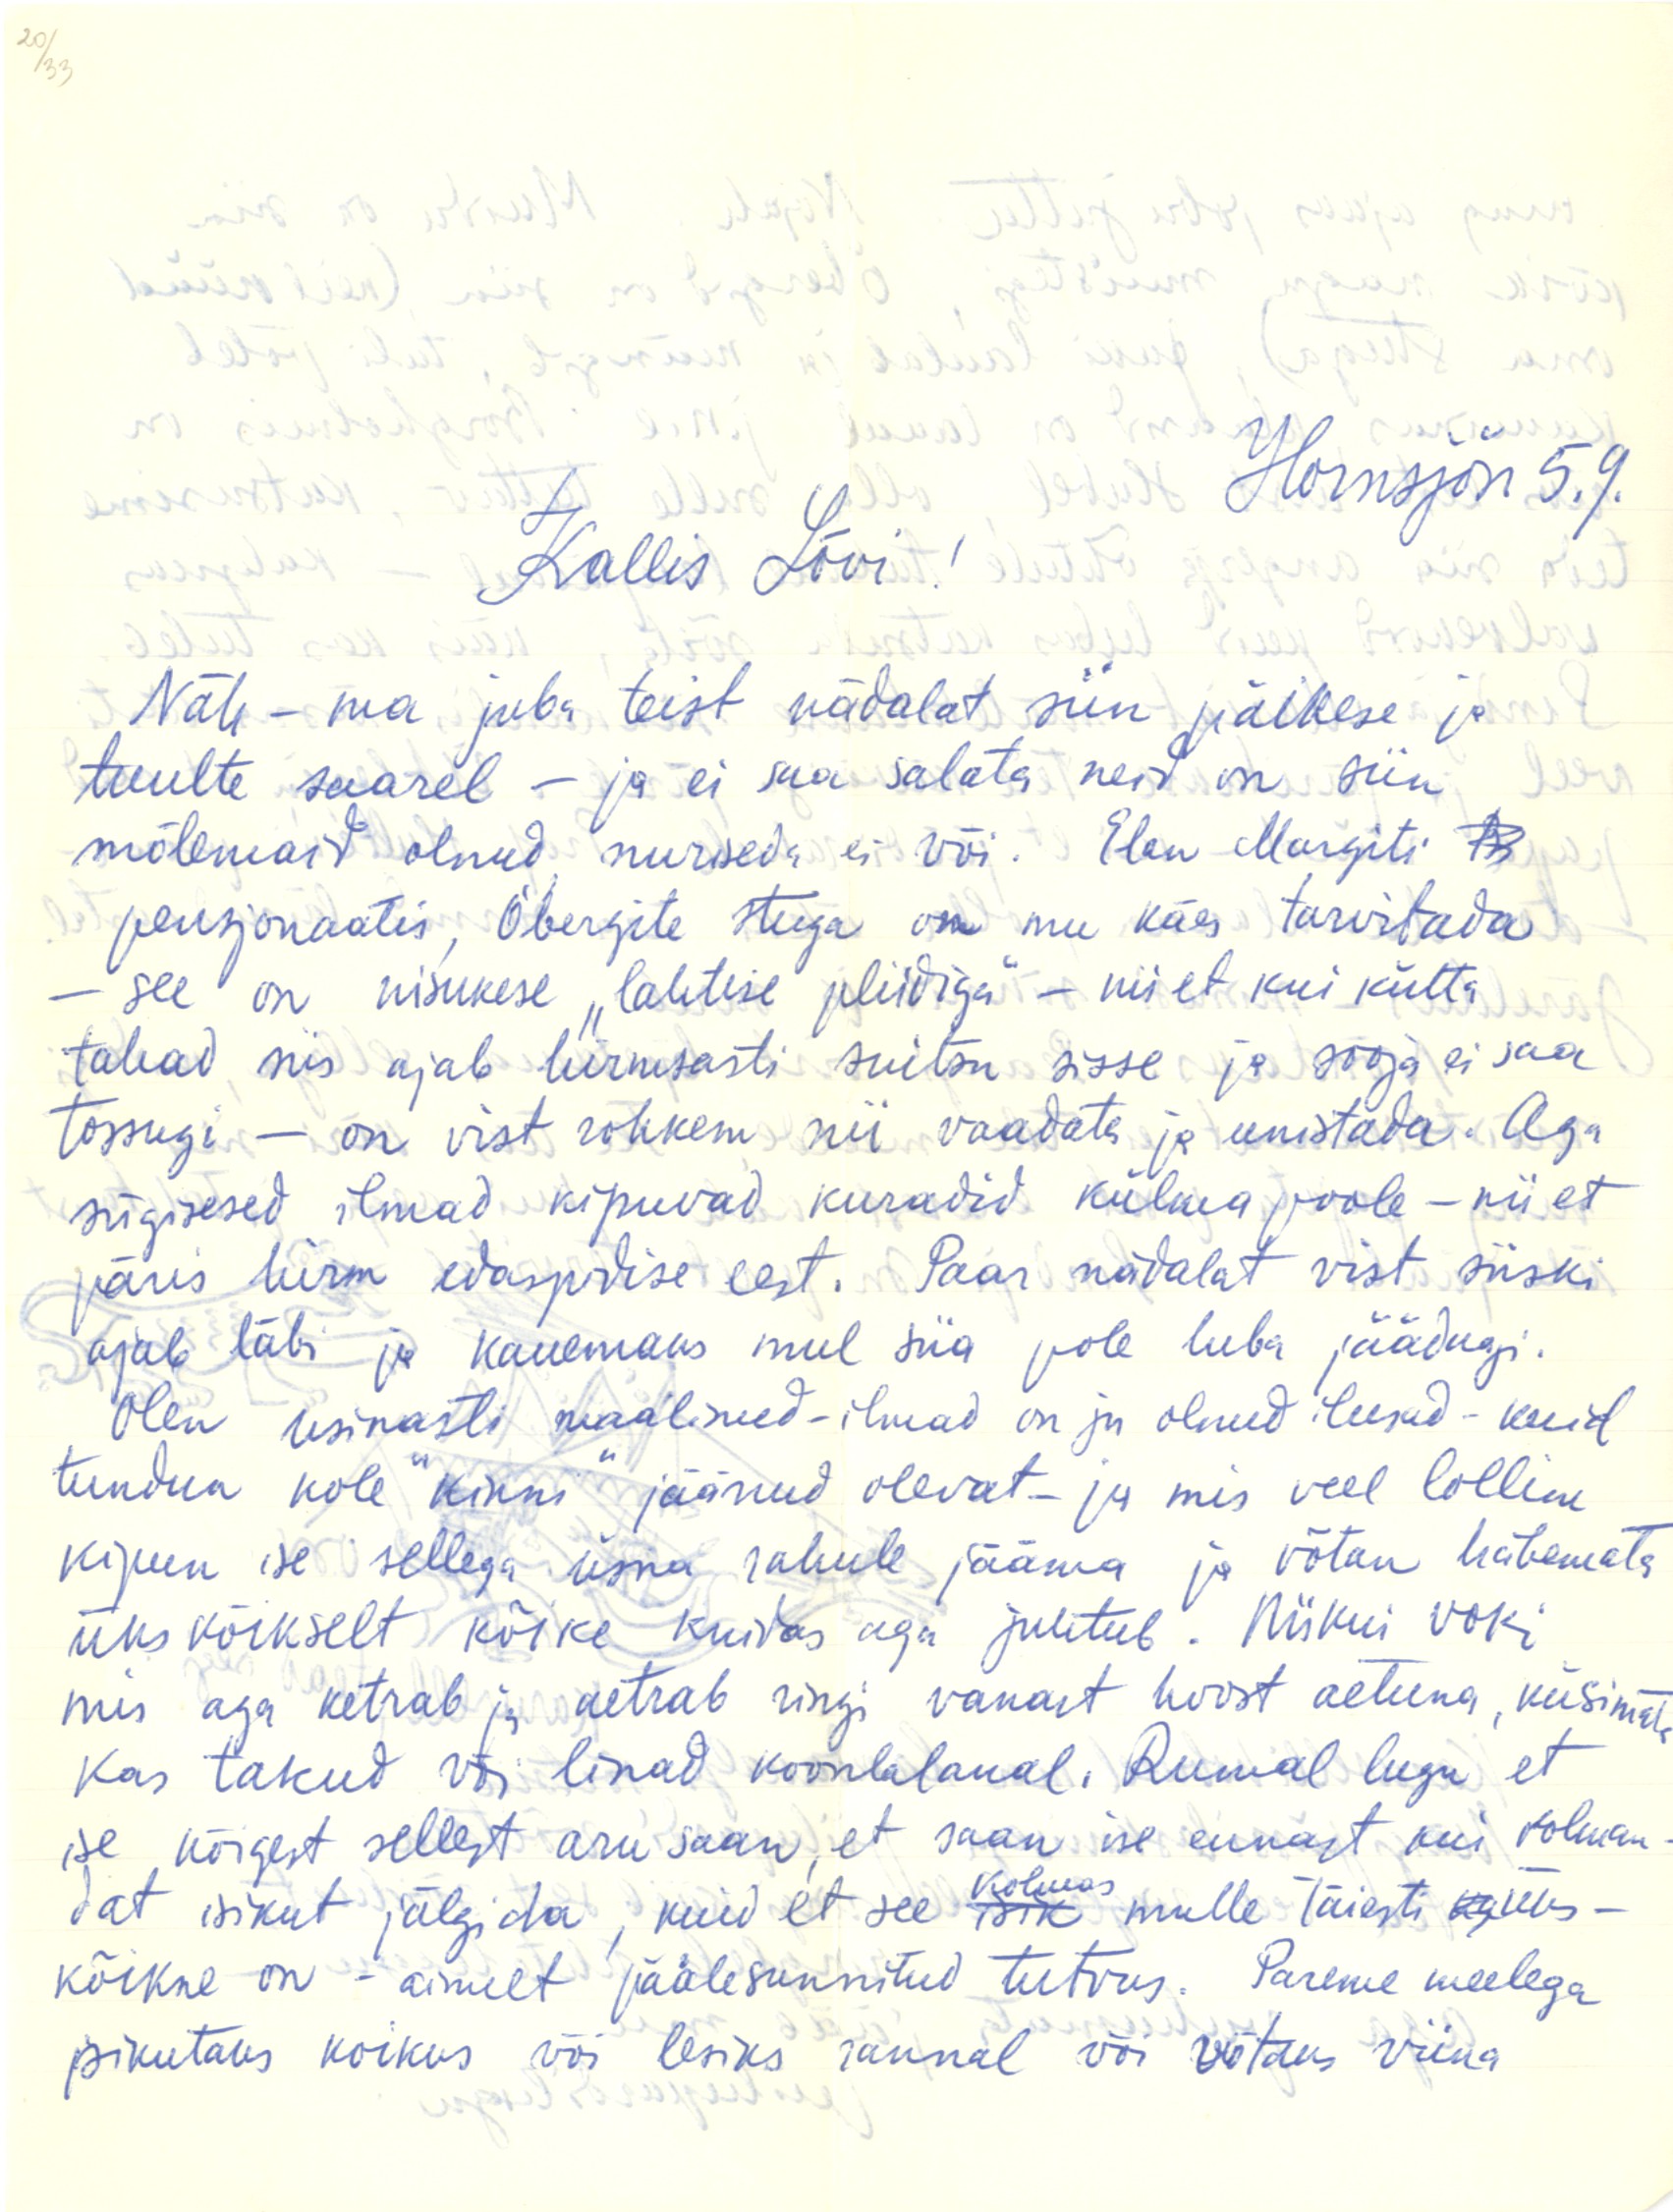 20/33
Hornsjön 5.9.
Kallis Lõvi!
Näh – ma juba teist nädalat siin päikese ja
tuulte saarel – ja ei saa salata neid on siin
mõlemaid olnud, nuriseda ei või. Elan Margiti
pensjonaatis, Öbergite stuga on mu käes tarvitada
– see on nisukese „lahtise pliidiga" – nii et kui kütta
tahad siis ajab hirmsasti suitsu sisse ja sooja ei saa
tossugi – on vist rohkem nii vaadata ja unistada. Aga
sügisesed ilmad kipuvad kuradid külma poole – nii et
päris hirm edaspidise eest. Paar nädalat vist siiski
ajab läbi ja kauemaks mul siia pole luba jäädagi.
Olen usinasti maalinud – ilmad on ju olnud ilusad – kuid
tundun kole "kinni" jäänud olevat – ja mis veel lollim
kipun ise sellega üsna rahule jääma ja võtan häbemata
üks kõikselt kõike kuidas aga juhtub. Niikui voki
mis aga ketrab ja ketrab ringi vanast hoost aetuna, küsimata
kas takud või linad koonlalaual. Rumal lugu et
ise kõigest sellest aru saan, et saan ise ennast kui kolman-
dat isikut jälgida, kuid et see isik kolmas mulle täiesti üks-
kõikne on – ainult päälesunnitud tutvus. Parema meelega
pikutaks koikus või lesiks rannal või võtaks viina